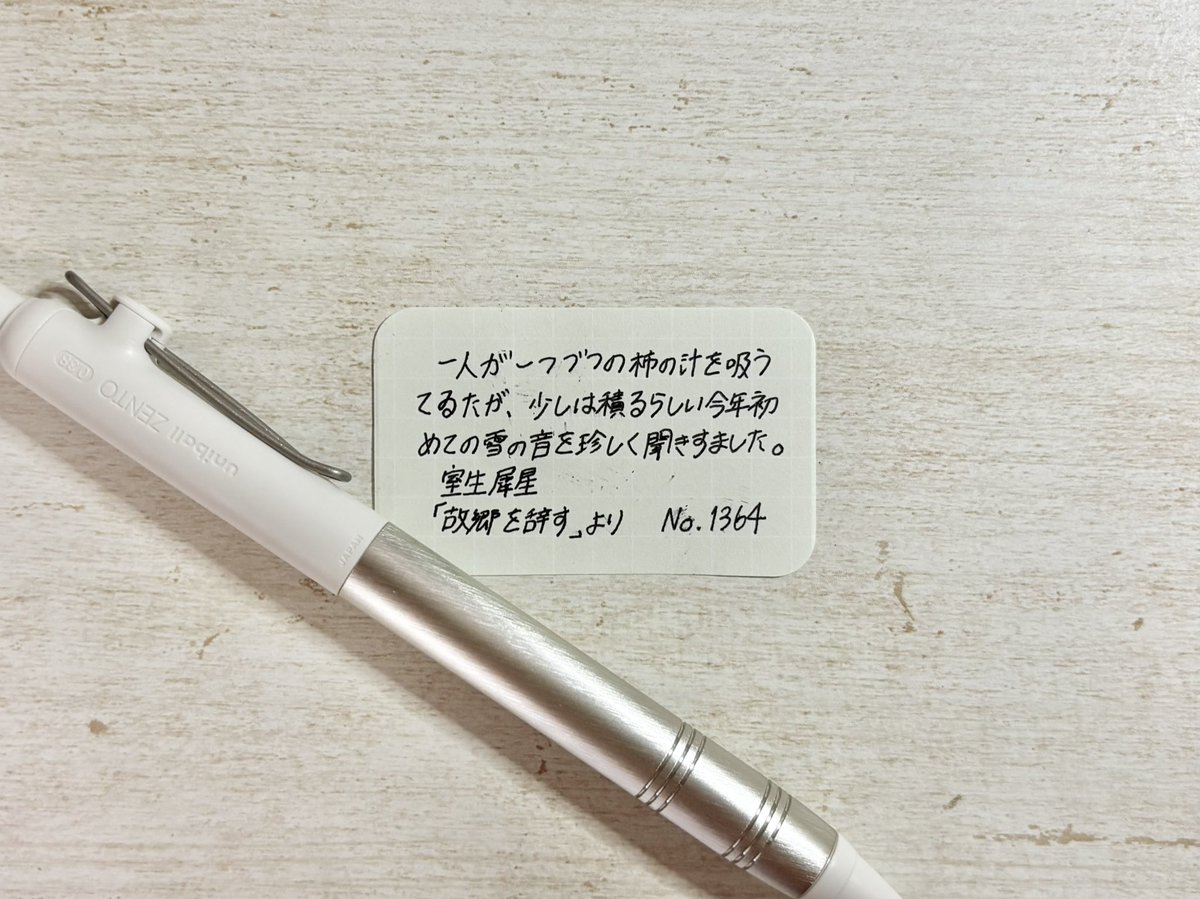 一人が一つづつの柿の汁を吸う
てるたが、少しは積るらしい今年初
めての雪の音を珍しく聞きすました。
室生犀星
「故郷を辞す」より　No.1364
uniball ZENTO 0.38
JAPAN